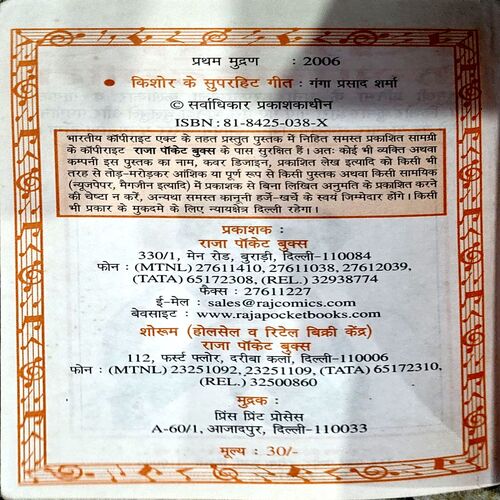 प्रथम मुद्रण : 2006
● किशोर के सुपरहिट गीत : गंगा प्रसाद शर्मा
© सर्वाधिकार प्रकाशकाधीन
ISBN : 81-8425-038-X
भारतीय कॉपीराइट एक्ट के तहत प्रस्तुत पुस्तक में निहित समस्त प्रकाशित सामग्री
के कॉपीराइट राजा पॉकेट बुक्स के पास सुरक्षित हैं। अतः कोई भी व्यक्ति अथवा
कम्पनी इस पुस्तक का नाम, कवर डिजाइन, प्रकाशित लेख इत्यादि को किसी भी
तरह से तोड़-मरोड़कर आंशिक या पूर्ण रूप से किसी पुस्तक अथवा किसी सामयिक
(न्यूजपेपर, मैगजीन इत्यादि) में प्रकाशक से बिना लिखित अनुमति के प्रकाशित करने
की चेष्टा न करें, अन्यथा समस्त कानूनी हर्जे-खर्चे के स्वयं जिम्मेदार होंगे। किसी
भी प्रकार के मुकदमे के लिए न्यायक्षेत्र दिल्ली रहेगा।
प्रकाशक :
राजा पॉकेट बुक्स
330/1, मेन रोड, बुराड़ी, दिल्ली-110084
फोन : (MTNL) 27611410, 27611038, 27612039,
(TATA) 65172308, (REL.) 32938774
फैक्स : 27611227
ई-मेल : sales@rajcomics.com
बेवसाइट : www.rajapocketbooks.com
शोरूम (होलसेल व रिटेल बिक्री केंद्र)
राजा पॉकेट बुक्स
112, फर्स्ट फ्लोर, दरीबा कलां, दिल्ली-110006
फोन : (MTNL) 23251092, 23251109, (TATA) 65172310,
(REL.) 32500860
मुद्रक :
प्रिंस प्रिंट प्रोसेस
A-60/1, आजादपुर, दिल्ली-110033
मूल्य : 30/-